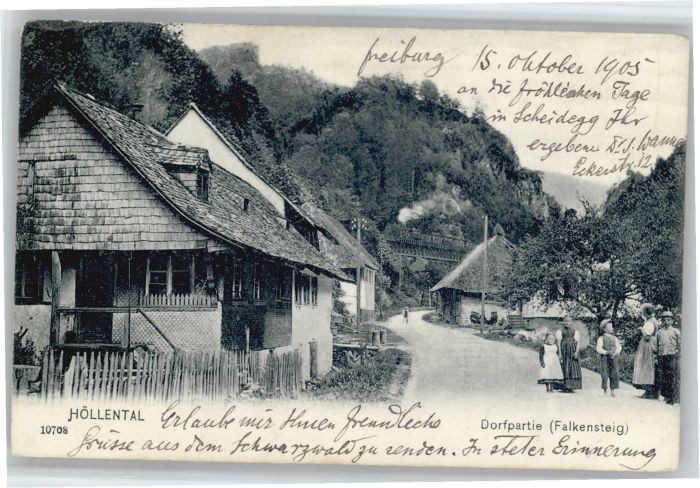 freiburg 15. Oktober 1905
an die fröhlichen Tage
in Scheidegg Ihr
ergebene Dr. J. Wanna
Eckerstr. 12
HÖLLENTAL
10708
Dorfpartie (Falkensteig)
Erlaube mir Ihnen freundliche
Grüsse aus dem Schwarzwald zu senden. In steter Erinnerung